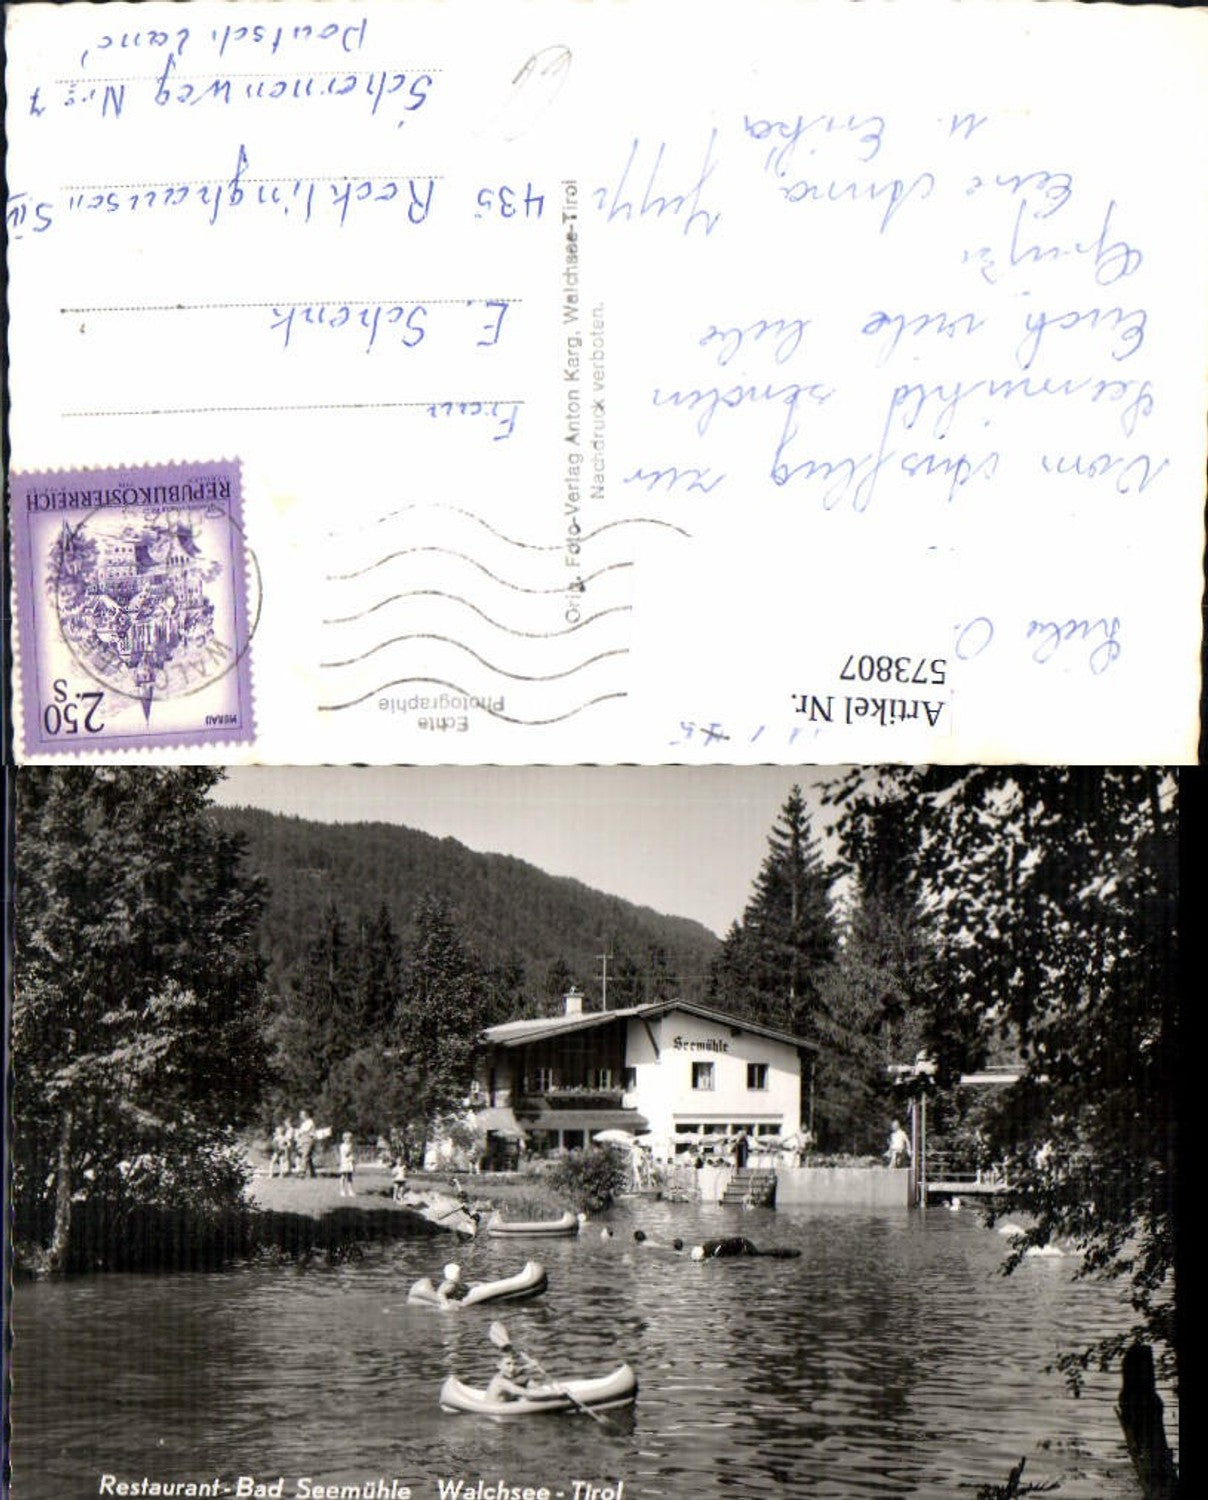 Artikel Nr.
573807
Liebe O.
Vom Ausflug zur
Seemühle senden
Euch viele liebe
Grüße
Eure Anna, Jupp
u. Erika!
Echte
Photographie
Orig. Foto-Verlag Anton Karg, Walchsee-Tirol
Nachdruck verboten.
MURAU
2.50 S
REPUBLIK ÖSTERREICH
Frau
E. Schenk
435 Recklinghausen S.IV
Schemenweg Nr. 7
Deutschland
Seemühle
Restaurant-Bad Seemühle Walchsee-Tirol